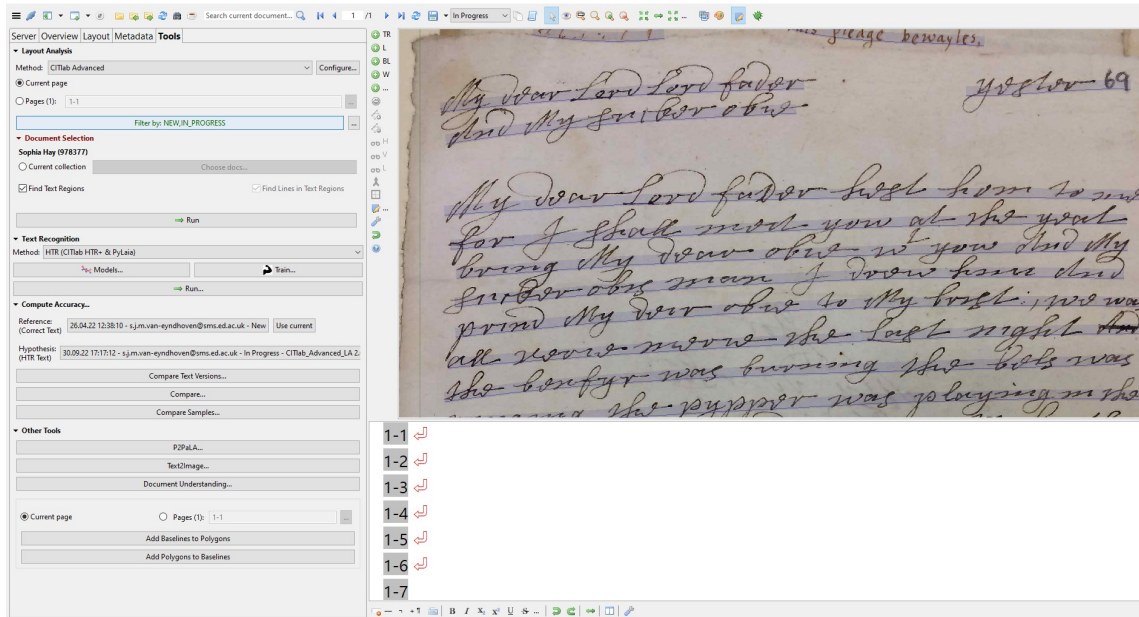 Search current document...
1
/1
In Progress
Server
Overview
Layout
Metadata
Tools
Layout Analysis
Method:
CITlab Advanced
Configure...
Current page
Pages (1):
1-1
...
Filter by: NEW,IN_PROGRESS
...
Document Selection
Sophia Hay (978377)
Current collection
Choose docs...
Find Text Regions
Find Lines in Text Regions
Run
Text Recognition
Method:
HTR (CITlab HTR+ & PyLaia)
Models...
Train...
Run...
Compute Accuracy...
Reference:
(Correct Text)
26.04.22 12:38:10 - s.j.m.van-eyndhoven@sms.ed.ac.uk - New
Use current
Hypothesis:
(HTR Text)
30.09.22 17:17:12 - s.j.m.van-eyndhoven@sms.ed.ac.uk - In Progress - CITlab_Advanced_LA 2.
Compare Text Versions...
Compare...
Compare Samples...
Other Tools
P2PaLA...
Text2Image...
Document Understanding...
Current page
Pages (1):
1-1
...
Add Baselines to Polygons
Add Polygons to Baselines
TR
L
BL
W
...
H
V
L
...
pledge bewayles,
My dear Lord Lord fader
yester 69
And My
My dear Lord fader hest hom to me
for I shall meit you at the yeat
bring My dear obie wt you And My
man I drew him And
prind My deir obie to My brist; we was
all verie merie the last night
the bonfyr was burning the bels was
the pypper was playing in the
1-1
1-2
1-3
1-4
1-5
1-6
1-7
B I X₁ X¹ U S ...